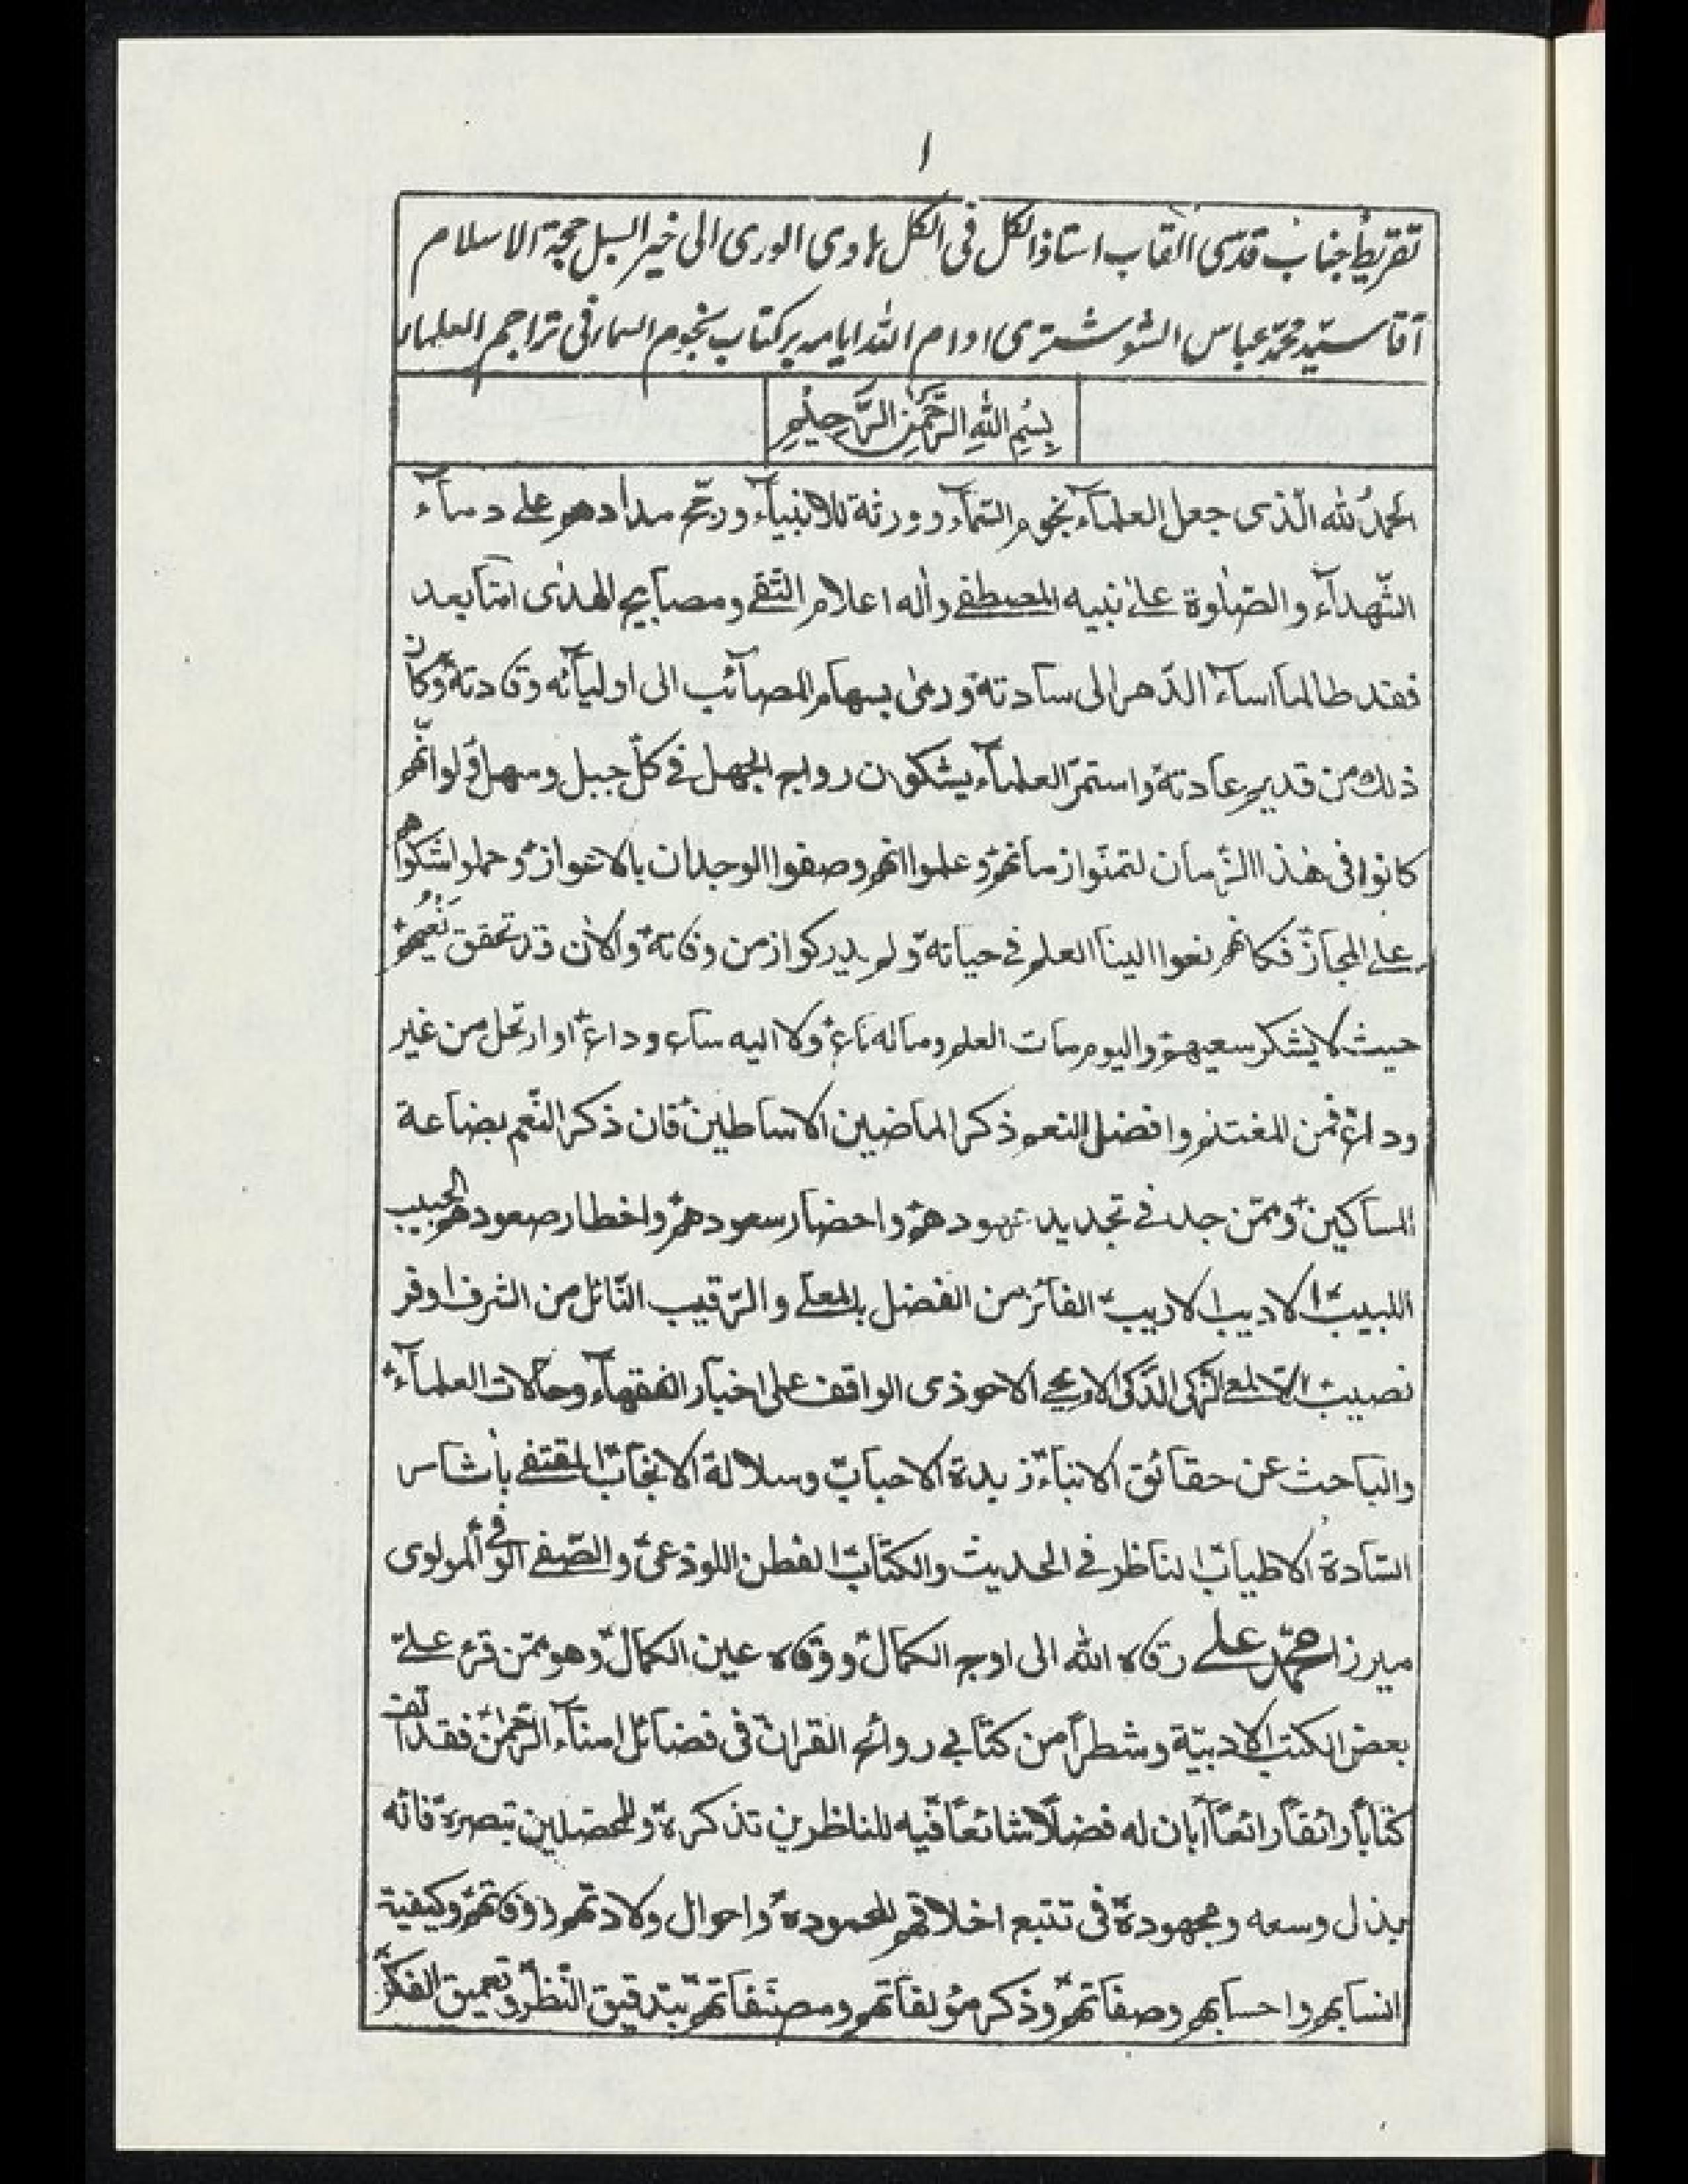 ١
تقریظ جناب قدسی القاب استاذ الکل فی الکل ہادی الوری الی خیر السبل حجة الاسلام
آقا سید محمد عباس الشوشتری ادام اللہ ایامہ بر کتاب نجوم السمار فی تراجم العلمار
بِسْمِ اللهِ الرَّحْمٰنِ الرَّحِيْمِ
الحمدُ لله الّذى جعل العلمآء نجوم السّمآء وورثة للانبيآء ورجّح مدادهم على دمآء
الشّهدآء والصّلوة على نبيه المصطفى واٰله اعلام التّقى ومصابيح الهدٰى امّا بعد
فقد طالما اسآء الدّهر الى سادته ورمٰى بسهام المصآئب الى اوليآئه وقادته وكان
ذلك من قديم عادته واستمرّ العلمآء يشكون رواج الجهل فى كلّ جبل وسهل ولو انّهم
كانوا فى هٰذا الزّمان لتمنّوا زمانهم وعلموا انهم وصفوا الوجدان بالاعواز وحملوا شكواهم
على المجاز فكانهم نعوا الينا العلم فى حياته ولم يدركوا زمن وفاته والاٰن قد تحقق نَعْيُهم
حيث لا يشكر سعيهم واليوم مات العلم وماله ناع ولا اليه ساع وداع اوارتحل من غير
وداع فمن المغتنم وافضل النعم ذكر الماضين الاساطين فان ذكر النّعم بضاعة
المساكين وممّن جد فى تجديد عهودهم واحضار سعودهم واخطار صعودهم الحبيب
اللبيب الاديب الاريب الفائز من الفضل بالمعلّى والرّقيب النّائل من الشرف اوفر
نصيب الالمعى الزكى الذّكى الاروعى الاحوذى الواقف على اخبار الفقهآء وحالات العلمآء
والباحث عن حقائق الانباء زبدة الاحباب وسلالة الانجاب المقتفى باٰثار
السّادة الاطياب الناظر فى الحديث والكتاب الفطن اللوذعى والصّفى الوفى المولوى
ميرزا محمّد على رقاه الله الى اوج الكمال ووقاه عين الكمال وهو ممّن قرء علىّ
بعض الكتب الادبيّة وشطراً من كتابى روائح القراٰن فى فضائل امنآء الرّحمٰن فقد الّف
كتاباً رائقاً رائعاً ابان له فضلاً شائعاً فيه للناظرين تذكرة وللمحصّلين تبصرة فانّه
بذل وسعه ومجهوده فى تتبع اخلاقهم المحمودة واحوال ولادتهم ووفاتهم وكيفية
انسابهم واحسابهم وصفاتهم وذكر مؤلفاتهم ومصنّفاتهم بتدقيق النّظر وتعميق الفكر